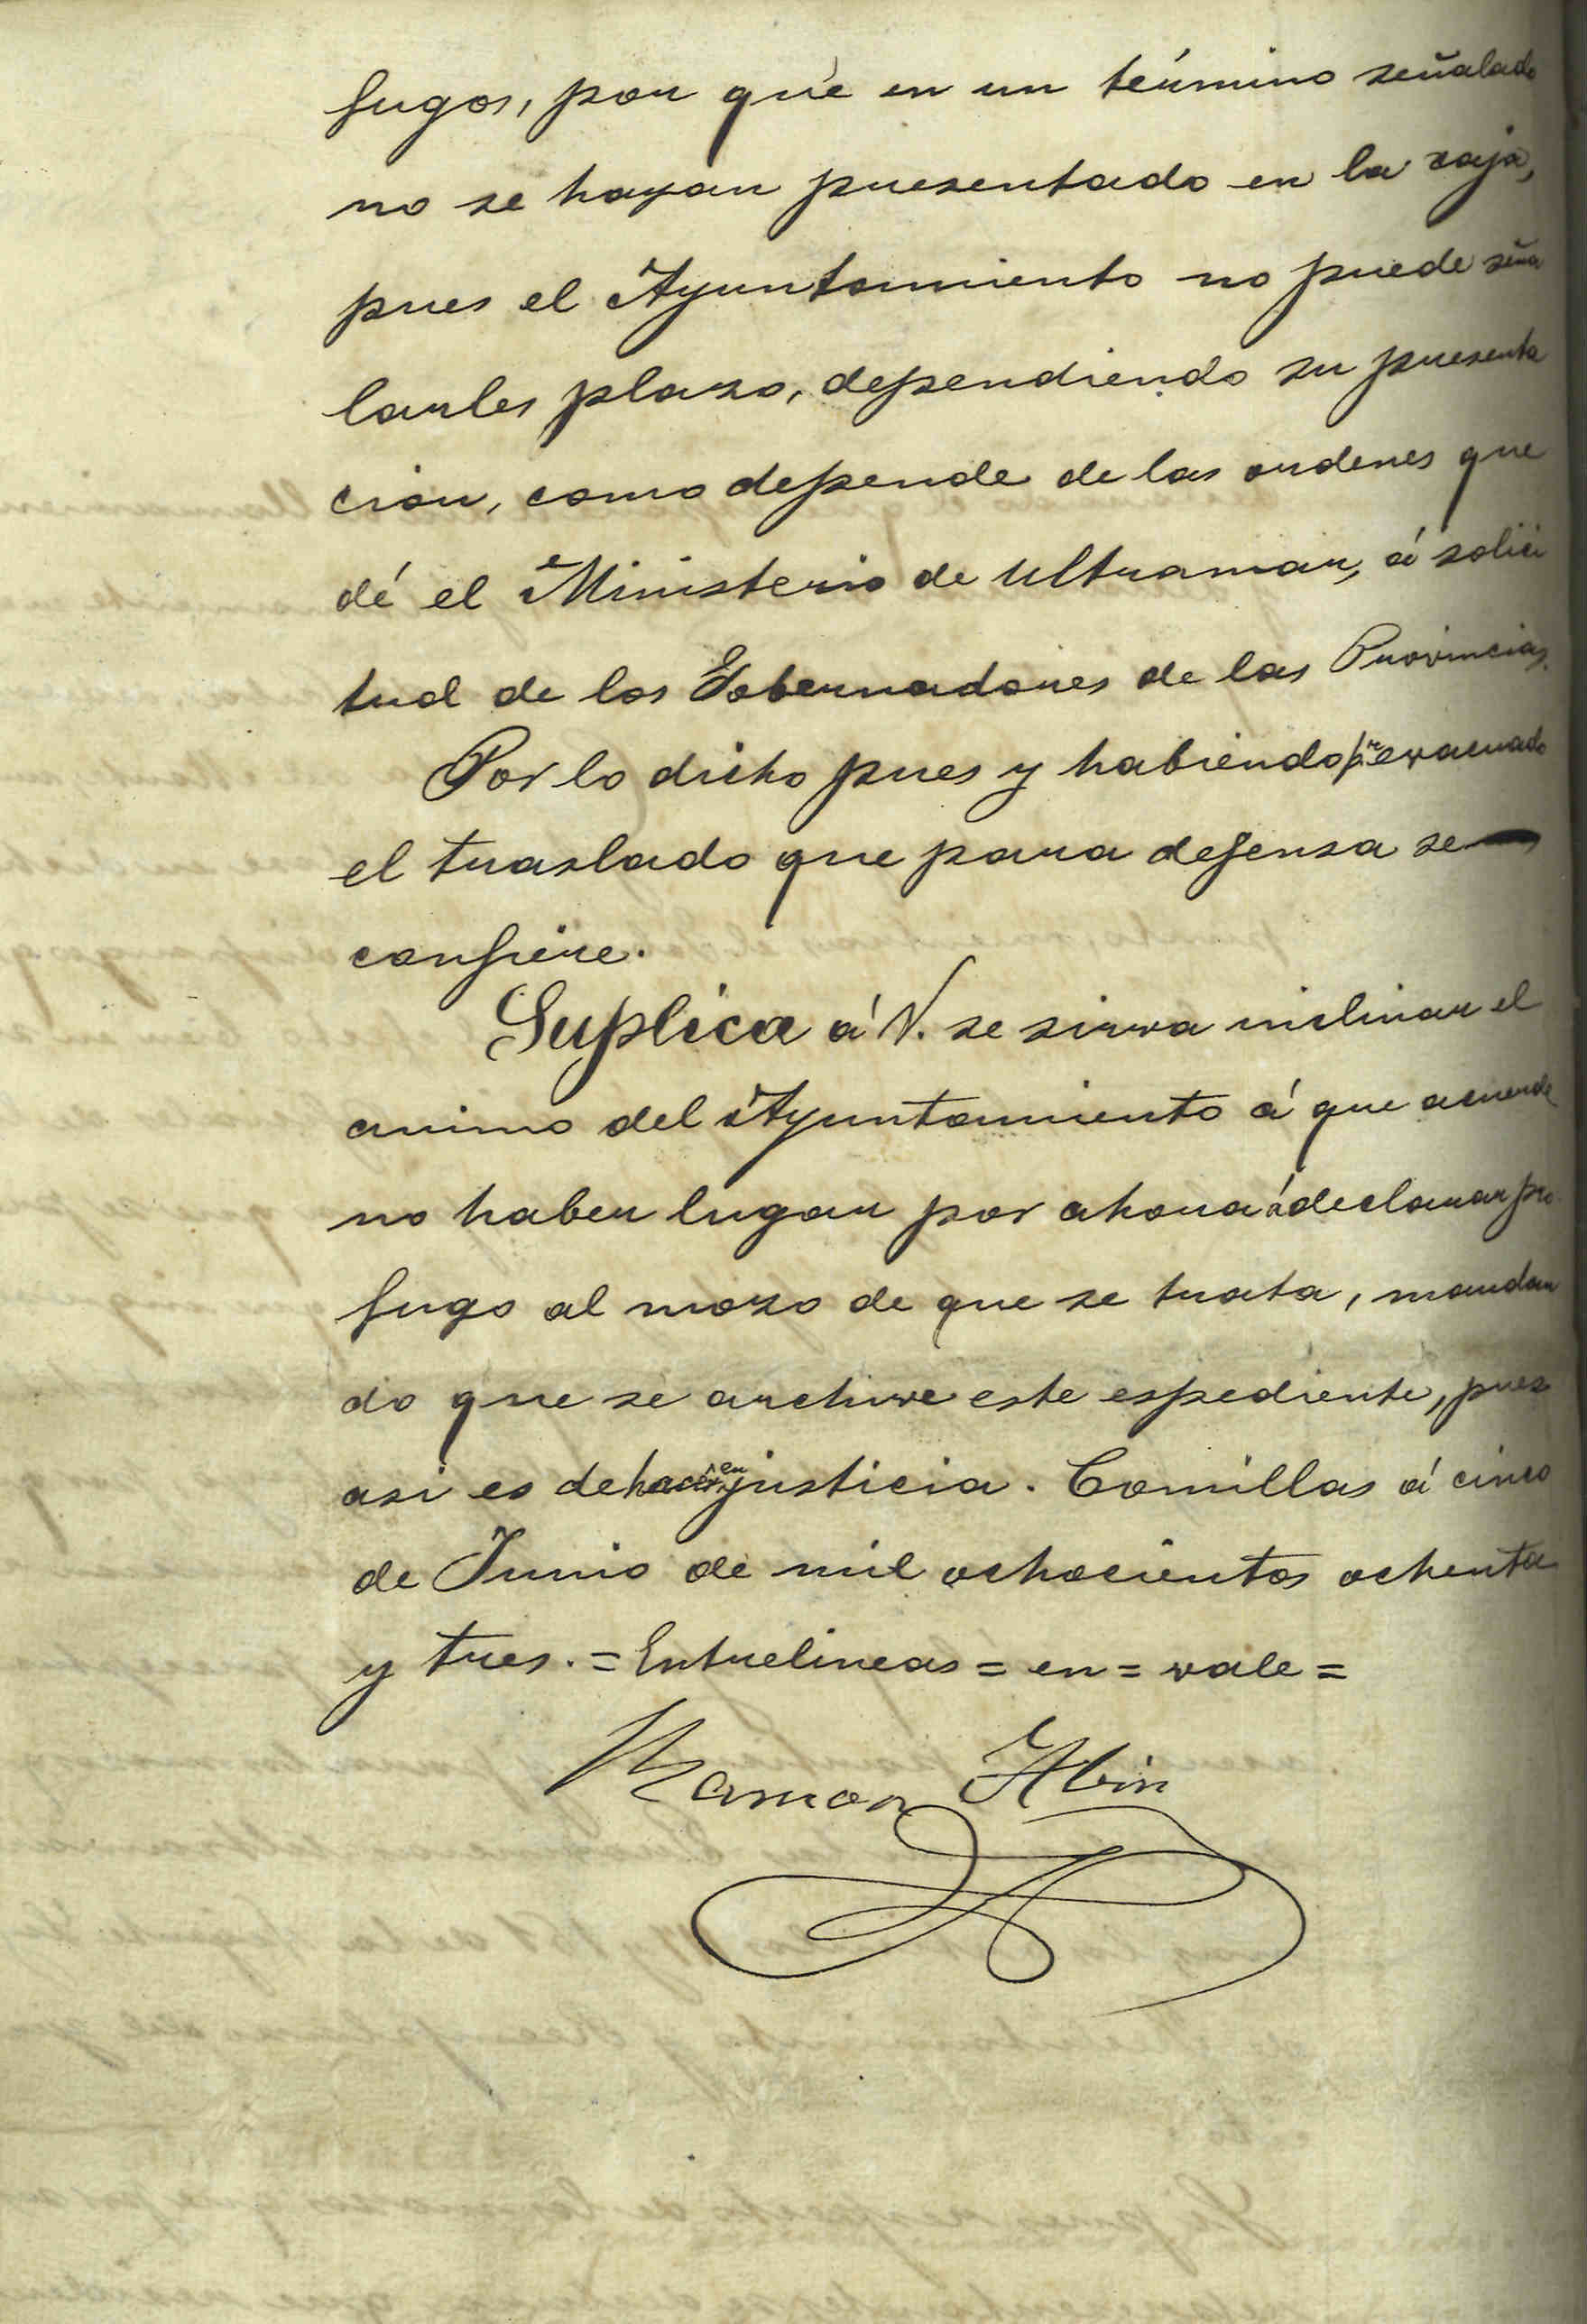 fugos, por qué en un término señalado
no se hayan presentado en la caja,
pues el Ayuntamiento no puede seña
larles plazo, dependiendo su presenta
cion, como depende de las ordenes que
dé el Ministerio de Ultramar, á solici
tud de los Gobernadores de las Provincias.
Por lo dicho pues y habiendo pr evacuado
el traslado que para defensa se
confiere.
Suplica á V. se sirva inclinar el
animo del Ayuntamiento á que acuerde
no haber lugar por ahora á declarar pro
fugo al mozo de que se trata, mandan
do que se archive este espediente, pues
asi es de hacer en justicia. Comillas á cinco
de Junio de mil ochocientos ochenta
y tres. = Entrelineas = en = vale =
Ramon Abin